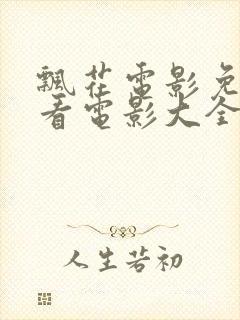 飄花電影免
看電影大全
人生若初